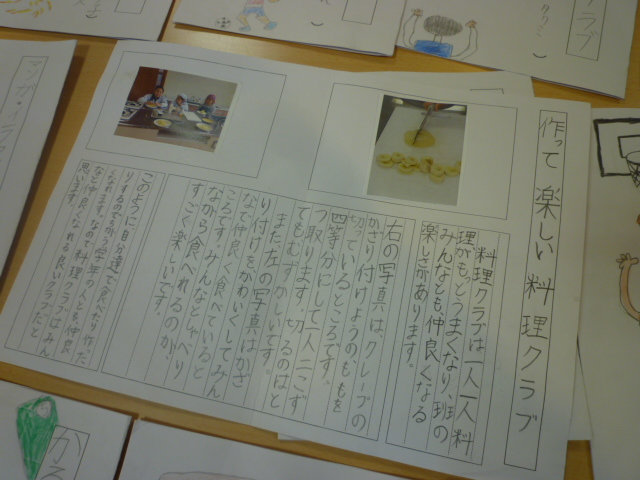 作って楽しい料理クラブ
料理クラブは一人一人料
理がもっとうまくなり、班の
みんなとも仲良くなる
楽しさがあります。
右の写真は、クレープの
かざり付けようの、ももを
切っているところです。
四等分にして一人二こず
つ取ります。切るのはと
てもむずかしいです。
また左の写真はかざ
り付けをかわいくしてみん
なで仲良く食べていると
ころです。みんなとしゃべり
ながら食べれるのが、
すごく楽しいです。
このように自分達で食べたり作った
りするので、
学年の人とも仲良
くなれます。なので料理クラブはみん
なと仲良くなれる良いクラブだと
思います。
クラブ
マンガ・イラス
かる